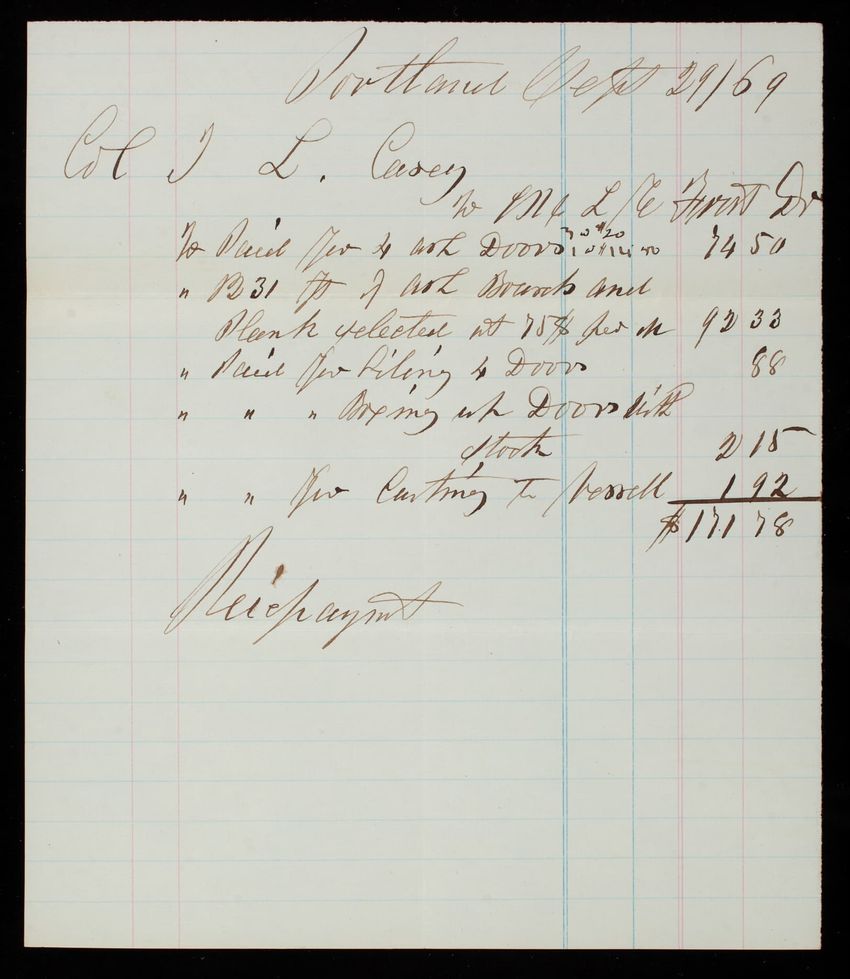 Portland Sept 29/69
Col T L. Casey
To Mc L /E Frost Dr
To Paid for 4 ash Doors 3 @ $20 1 @ $14 50 74 50
" 1231 ft of ash Boards and
Plank selected at 75$ per M 92 33
" Paid for Oiling 4 Doors 88
" " " Boxing up Doors with
stock 2 15
" " for Carting to Vessell 1 92
$171 78
Rec paymt